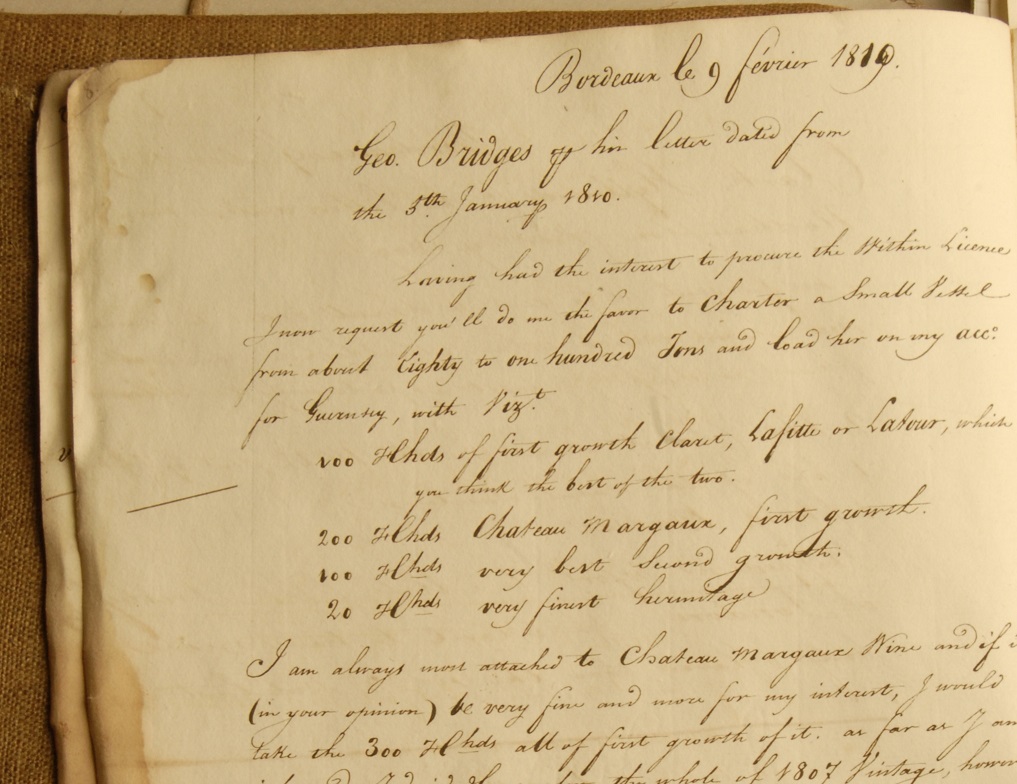 Bordeaux le 9 février 1810.
Geo. Bridges his letter dated from
the 5th January 1810.
Having had the interest to procure the Within Licence
I now request you'll do me the favor to Charter a Small Vessel
from about Eighty to one hundred Tons and load her on my acco.
for Guernsey, with Vizt.
100 Hhds of first growth Claret, Lafitte or Latour, which
you think the best of the two.
200 Hhds Chateau Margaux, first growth.
100 Hhds very best Second growth.
20 Hhds very finest hermitage
I am always most attached to Chateau Margaux Wine and if
(in your opinion) be very fine and more for my interest, I would
take the 300 Hhds all of first growth of it. as far as I am
the whole of 1807 Vintage,